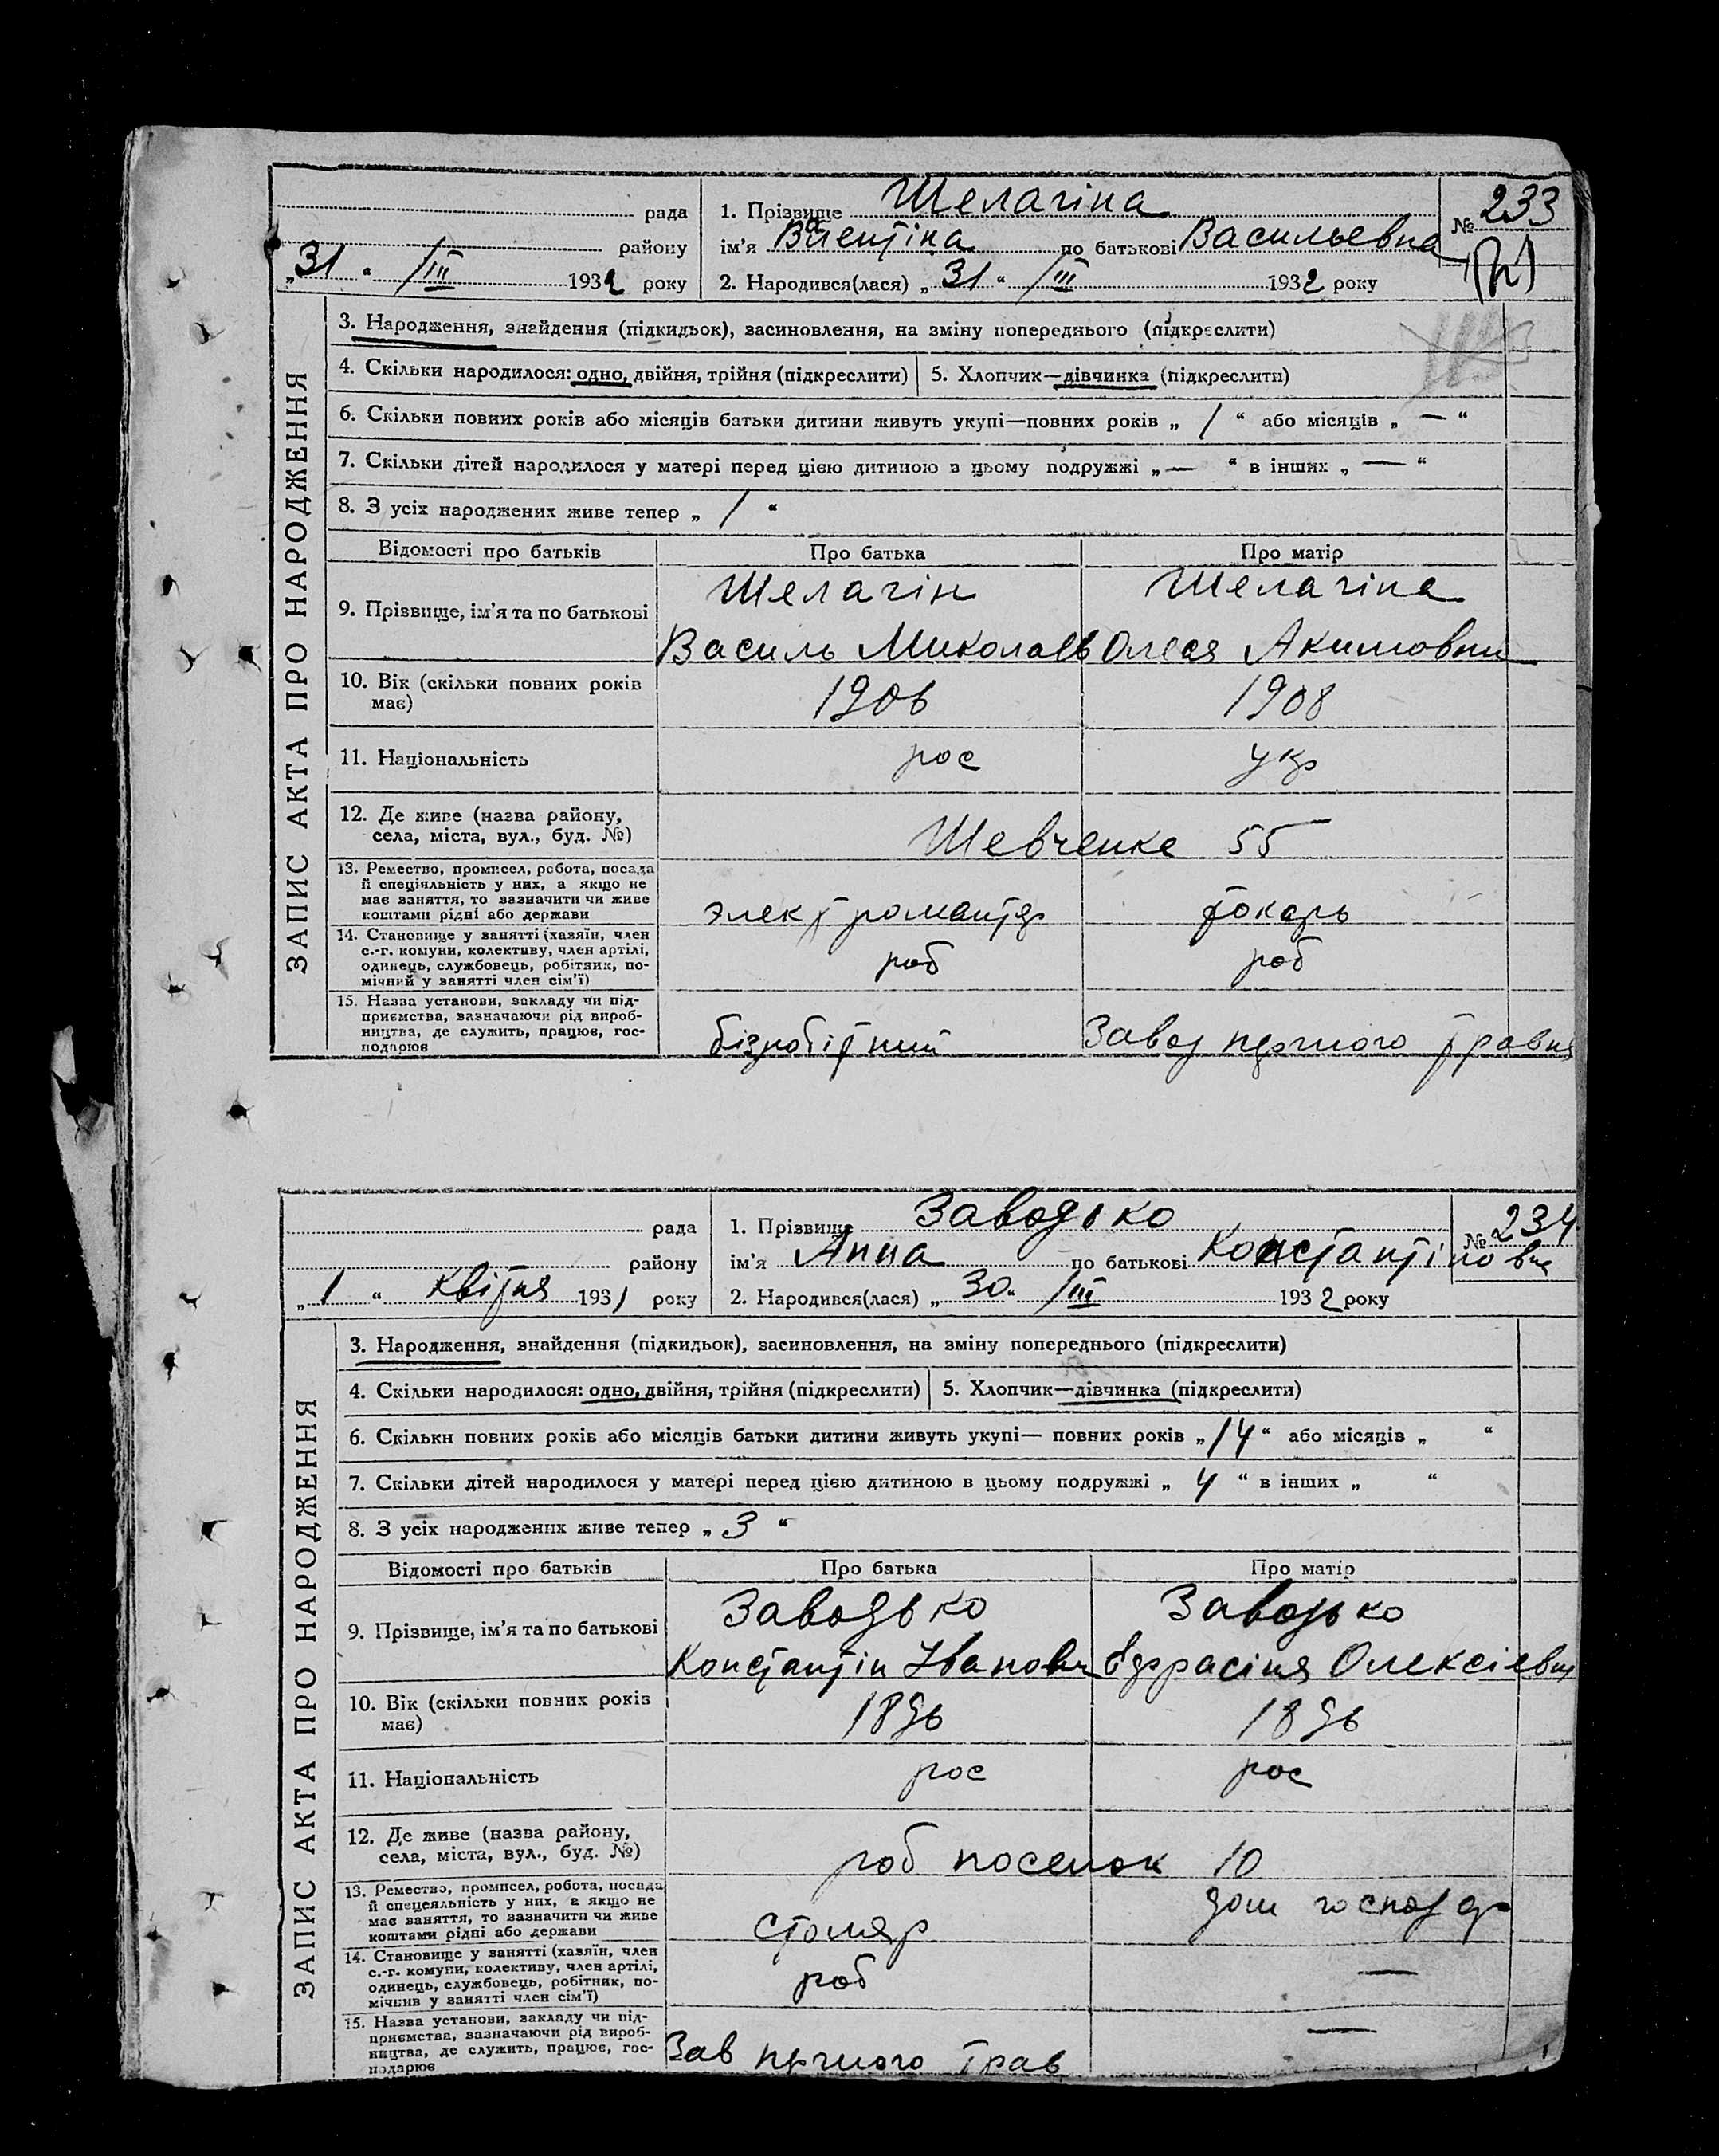 рада
району
„31“ /III 1932 року
1. Прізвище Шелагіна
ім'я Валентіна по батькові Васильевна
2. Народився(лася) „31“ /III 1932 року
№ 233
ЗАПИС АКТА ПРО НАРОДЖЕННЯ
3. Народження, знайдення (підкидьок), засиновлення, на зміну попереднього (підкреслити)
4. Скільки народилося: одно, двійня, трійня (підкреслити) 5. Хлопчик—дівчинка (підкреслити)
6. Скільки повних років або місяців батьки дитини живуть укупі—повних років „ 1 “ або місяців „ — “
7. Скільки дітей народилося у матері перед цією дитиною в цьому подружжі „ — “ в інших „ — “
8. З усіх народжених живе тепер „ 1 “
Відомості про батьків Про батька Про матір
9. Прізвище, ім'я та по батькові
Шелагін Шелагіна
Василь Миколаєв Олеся Акимовни
10. Вік (скільки повних років
має)
1906 1908
11. Національність рос укр
12. Де живе (назва району,
села, міста, вул., буд. №)
Шевченке 55
13. Ремество, промисел, робота, посада
й спеціяльність у них, а якщо не
має заняття, то зазначити чи живе
коштами рідні або держави
электромантер токарь
14. Становище у занятті (хазяїн, член
с.-г. комуни, колективу, член артілі,
одинець, службовець, робітник, по-
мічний у занятті член сім'ї)
роб роб
15. Назва установи, закладу чи під-
приємства, зазначаючи рід вироб-
ництва, де служить, працює, гос-
подарює
бізробітний Завод першого травня
рада
району
„1“ квітня 1931 року
1. Прізвище Заводько
ім'я Анна по батькові Констянтіновне
2. Народився(лася) „30“ /III 1932 року
№ 234
ЗАПИС АКТА ПРО НАРОДЖЕННЯ
3. Народження, знайдення (підкидьок), засиновлення, на зміну попереднього (підкреслити)
4. Скільки народилося: одно, двійня, трійня (підкреслити) 5. Хлопчик—дівчинка (підкреслити)
6. Скільки повних років або місяців батьки дитини живуть укупі— повних років „ 14 “ або місяців „ “
7. Скільки дітей народилося у матері перед цією дитиною в цьому подружжі „ 4 “ в інших „ “
8. З усіх народжених живе тепер „ 3 “
Відомості про батьків Про батька Про матір
9. Прізвище, ім'я та по батькові
Заводько Заводько
Констянтін Іванович Ефрасіня Олексіевна
10. Вік (скільки повних років
має)
1896 1896
11. Національність рос рос
12. Де живе (назва району,
села, міста, вул., буд. №)
роб поселок 10
13. Ремество, промисел, робота, посада
й спецеяльність у них, а якщо не
має заняття, то зазначити чи живе
коштами рідні або держави
столяр дом господар
14. Становище у занятті (хазяїн, член
с.-г. комуни, колективу, член артілі,
одинець, службовець, робітник, по-
мічнив у занятті член сім'ї)
роб —
15. Назва установи, закладу чи під-
приємства, зазначаючи рід вироб-
ництва, де служить, працює, гос-
подарює
Зав першого трав —